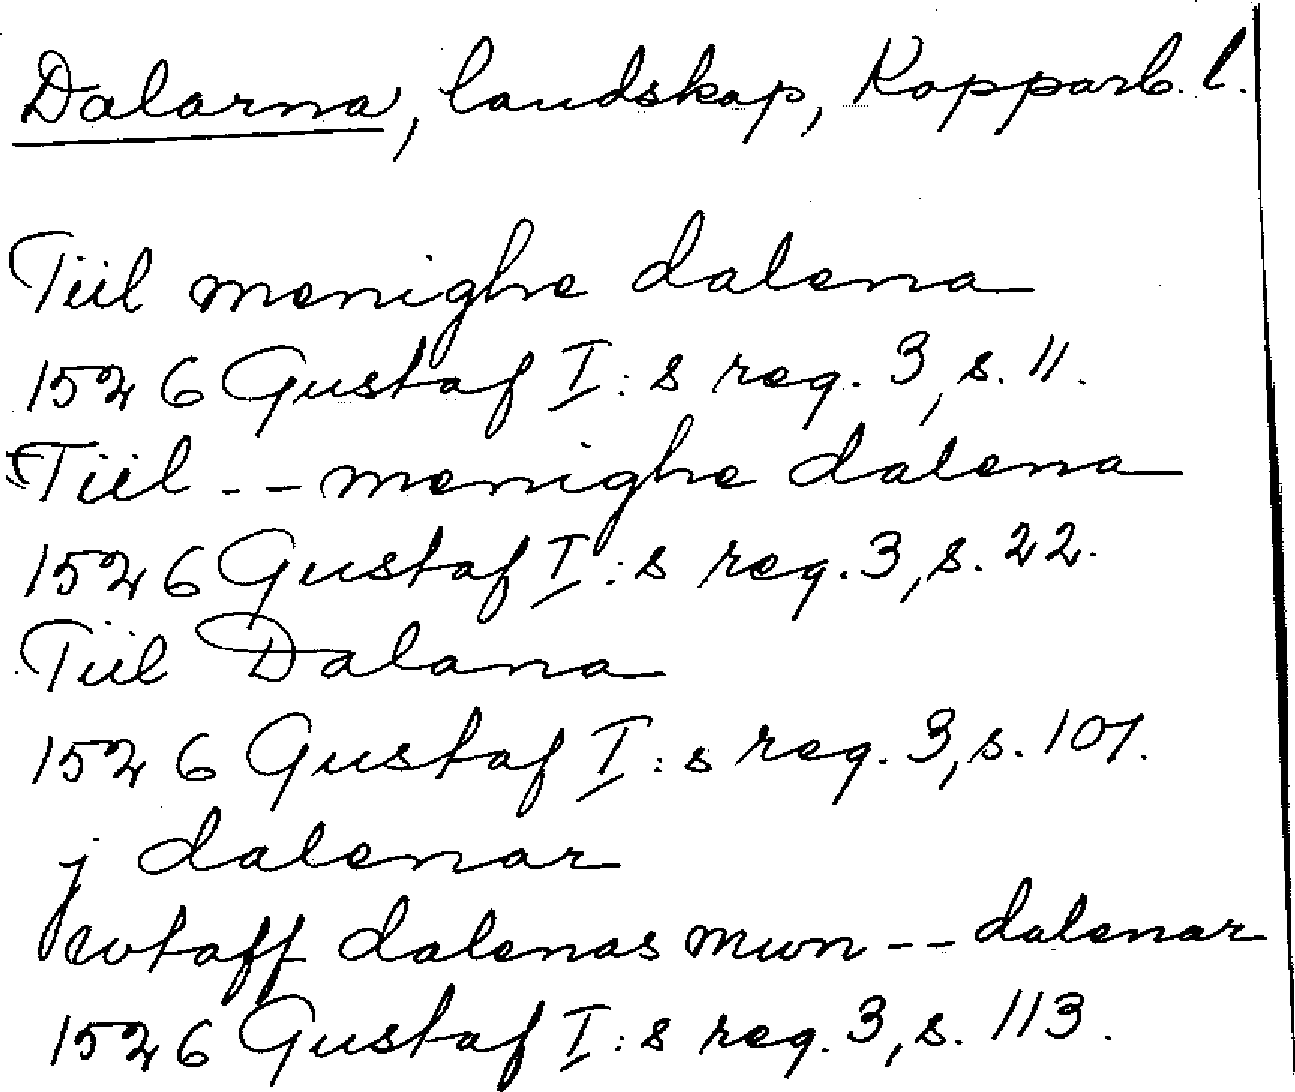 Dalarna, landskap, Kopparb. l.
Tiil menighe dalena
1526 Gustaf I:s reg. 3, s. 11.
Tiil -- menighe dalena
1526 Gustaf I:s reg. 3, s. 22.
Tiil Dalana
1526 Gustaf I:s reg. 3, s. 107.
j dalenar
wtaff dalenas mwn -- dalenar
1526 Gustaf I:s reg. 3, s. 113.